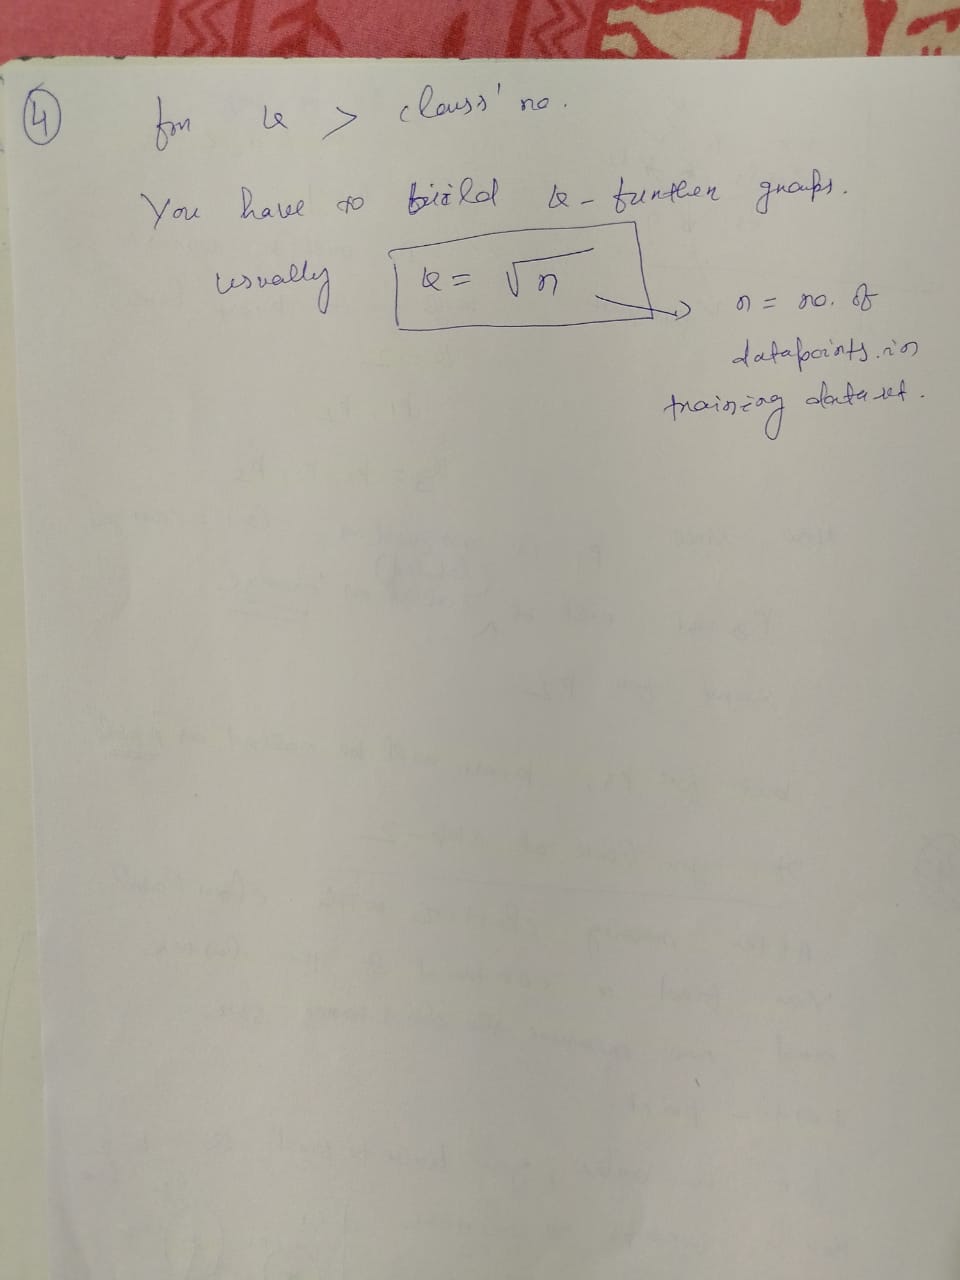 ④ for k > class' no.
You have to build k - further groups.
usually k = √n
n = no. of
datapoints in
training dataset.